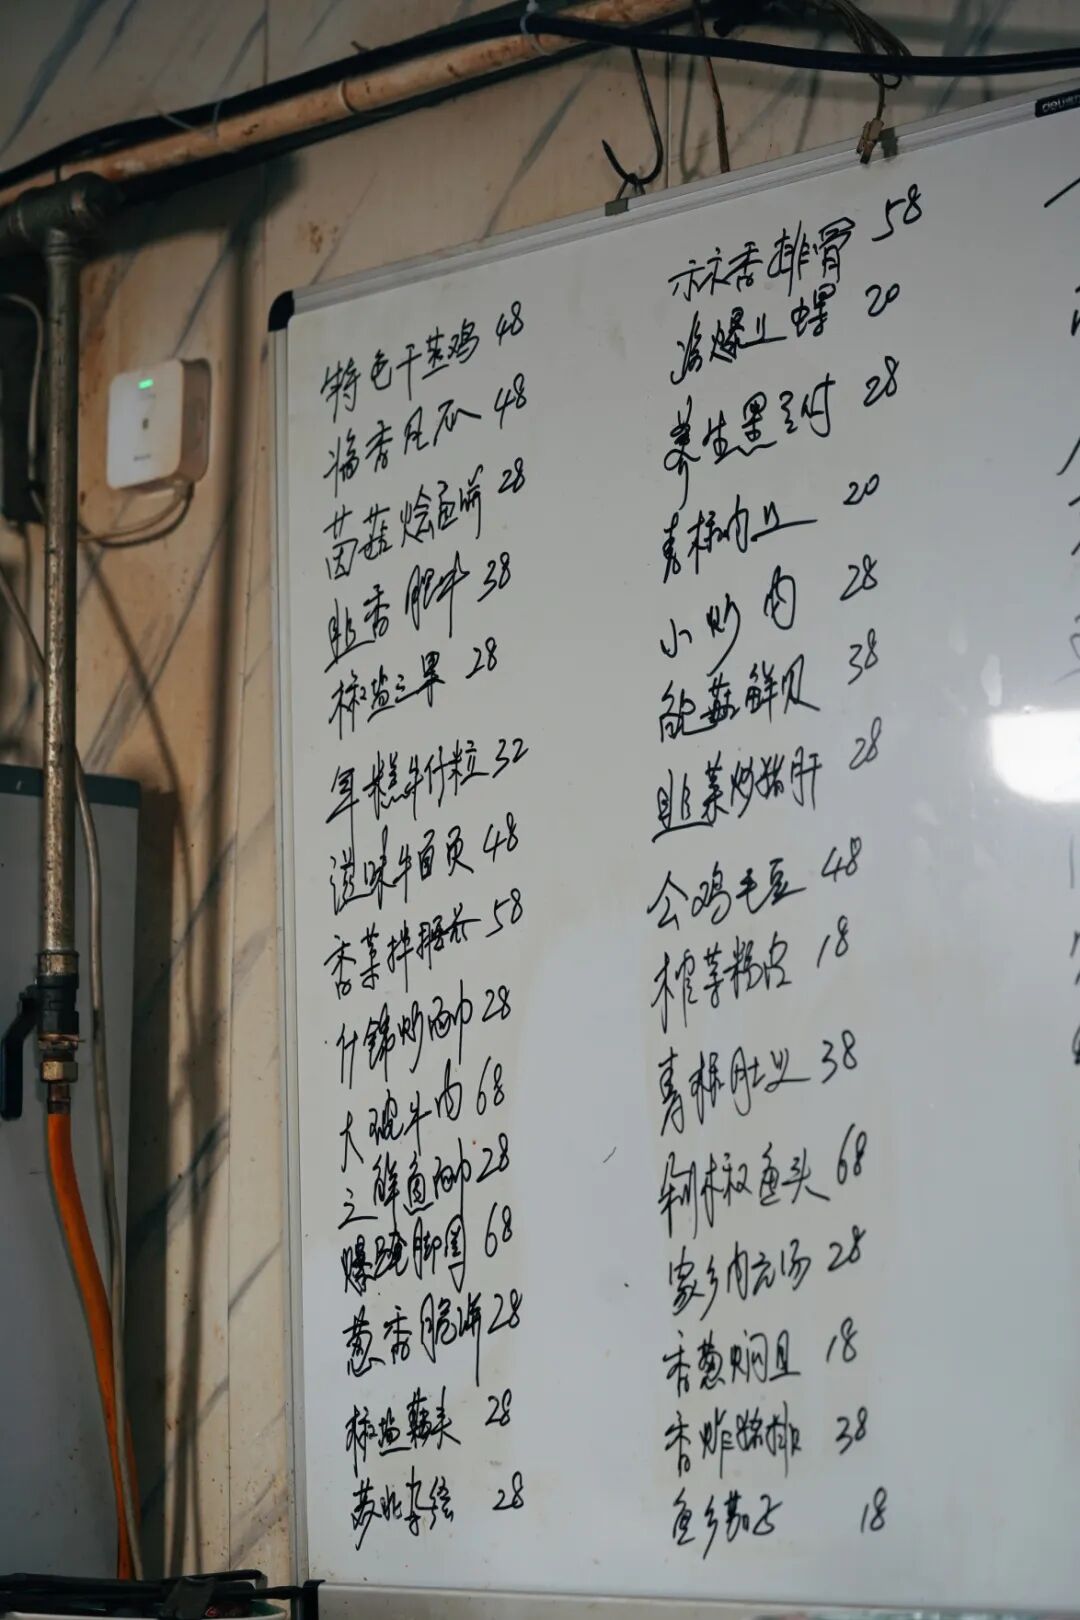 deli
特色干蒸鸡 48
酱香凤爪 48
茵菇烩鱼饼 28
韭香肥牛 38
椒盐三果 28
年糕牛仔粒 32
滋味牛百页 48
香菜拌腰花 58
什锦炒 28
大碗牛肉 68
三鲜鱼 28
爆腌脚圈 68
葱香脆饼 28
椒盐藕夹 28
苏北杂烩 28
蒜香排骨 58
汤爆上螺 20
养生黑豆付 28
青椒肉丝 20
小炒肉 28
鲍菇鲜贝 38
韭菜炒猪肝 28
公鸡毛豆 48
榨菜粉皮 18
青椒肚丝 38
剁椒鱼头 68
家乡肉元汤 28
香葱焖豆 18
香炸猪排 38
鱼乡茄子 18